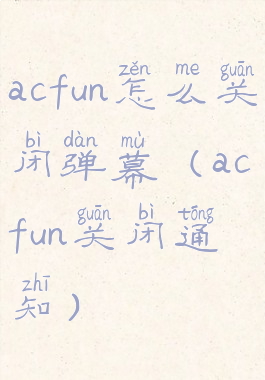 zěn me guān
acfun怎么关
bì dàn mù
闭弹幕（ac
guān bì tōng
fun关闭通
zhī
知）